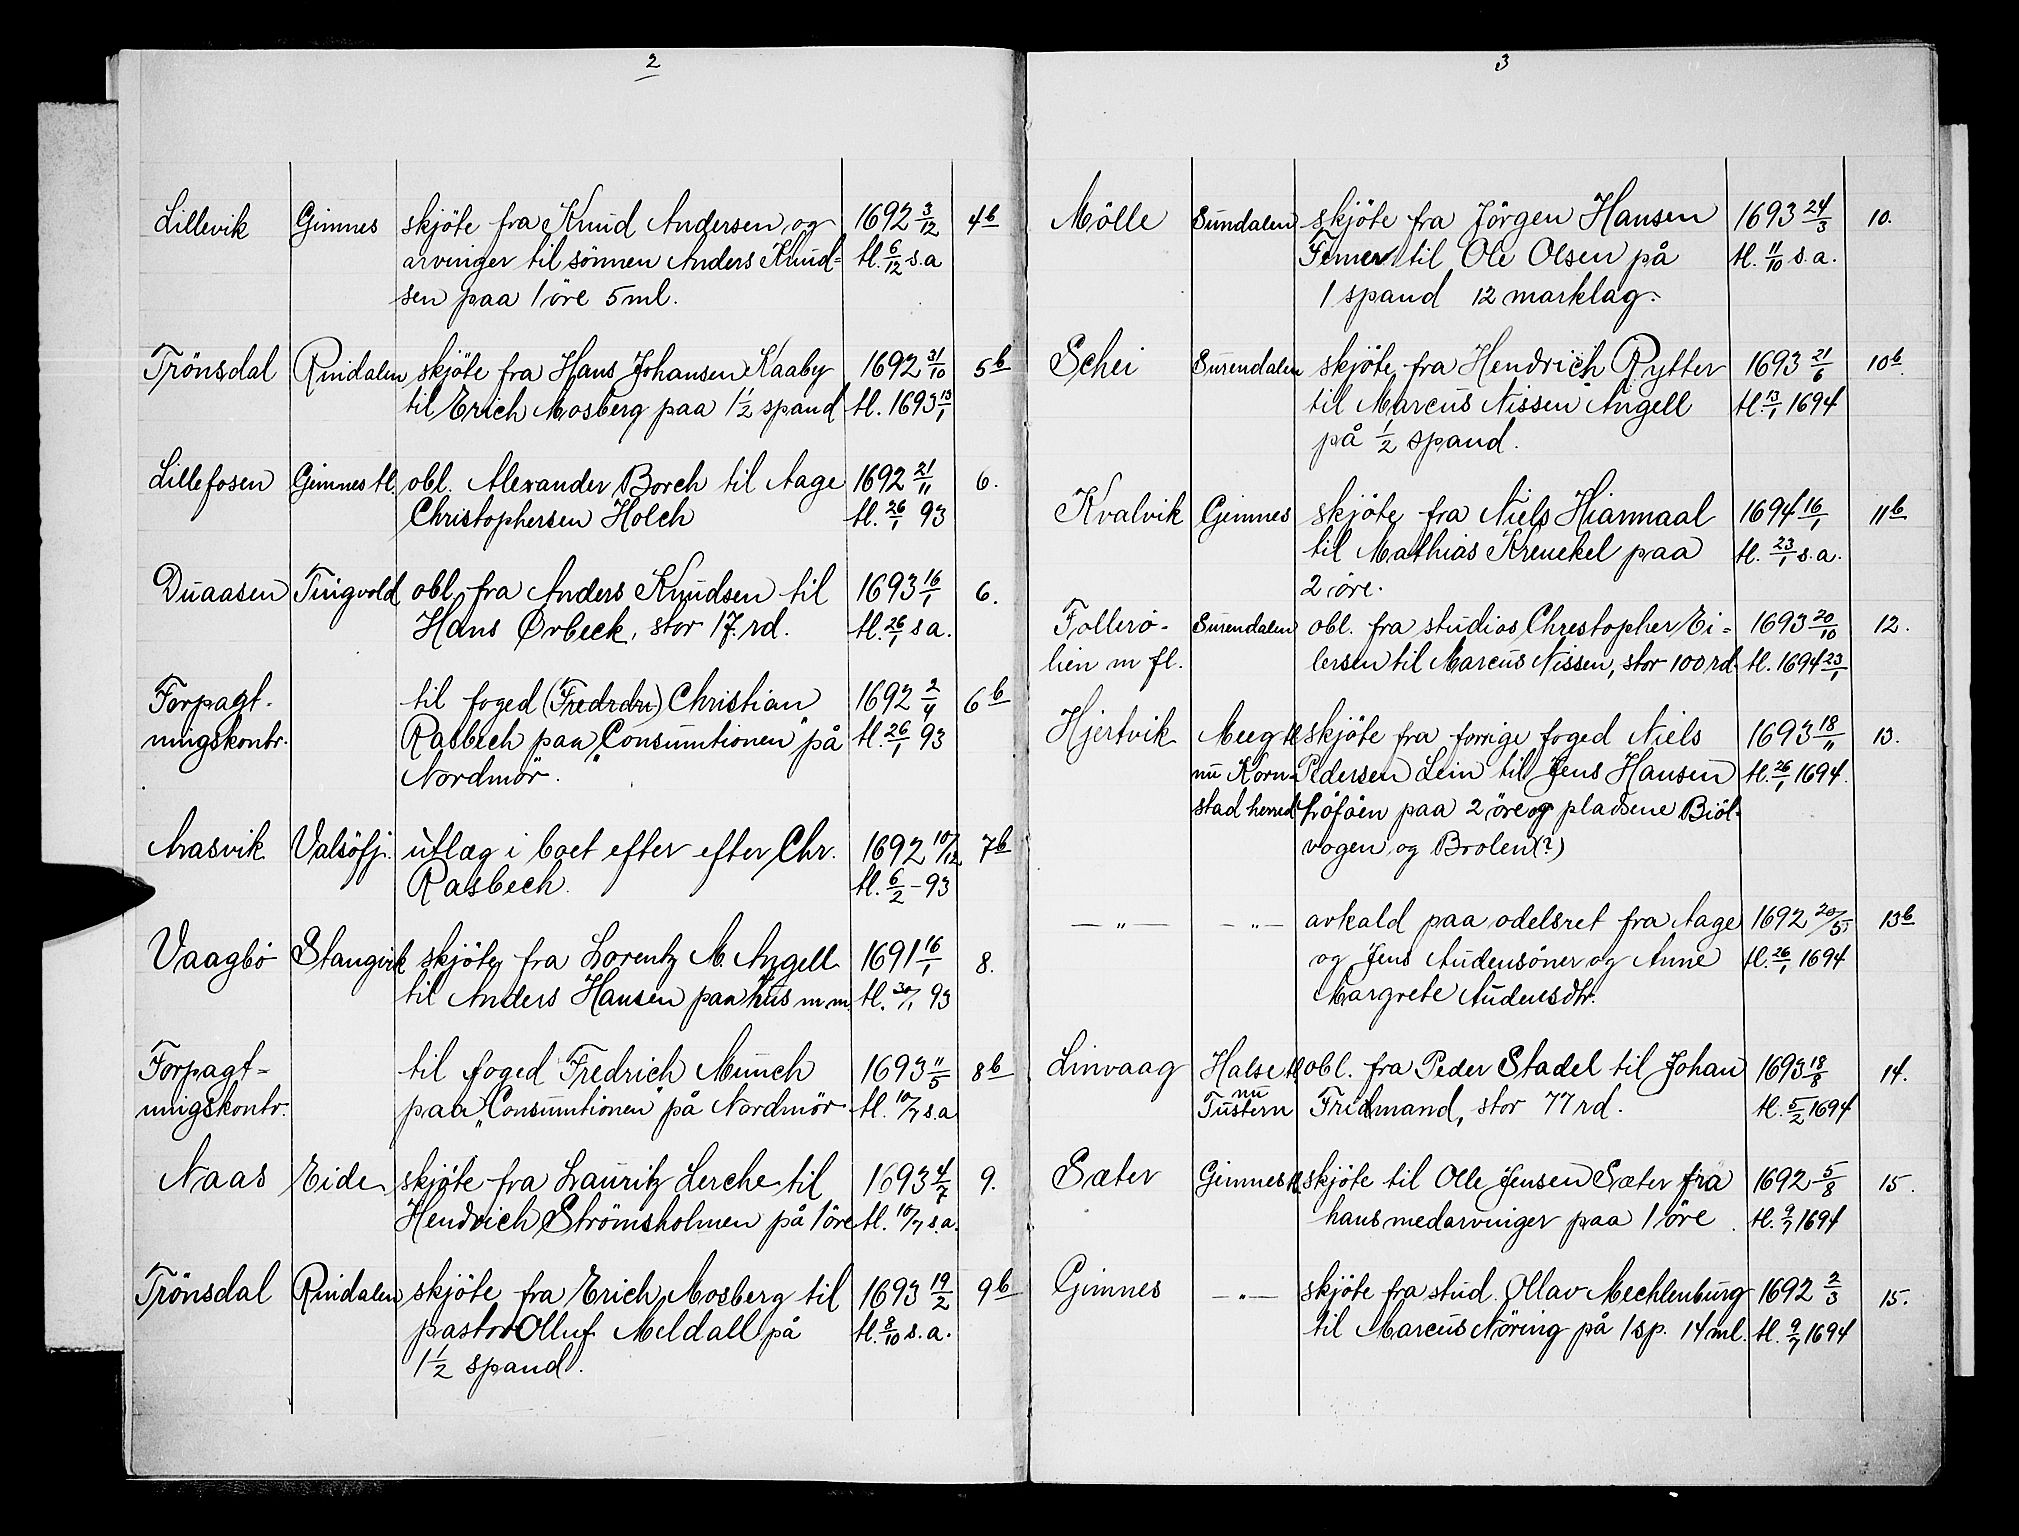 2
Lillevik Gimnes skjöte fra Knud Andersen og 1692 3/12 4b
arvinger til sönnen Anders Knud- tl. 6/12 s.a
sen paa 1 öre 5 ml.
Trönsdal Rindalen skjöte fra Hans Johansen Kaaby 1692 31/10 5b
til Erich Mosberg paa 1 1/2 spand tl. 1693 13/1
Lillefosen Gimnes tl. obl. Alexander Borch til Aage 1692 21/11 6.
Christophersen Holch tl. 26/1 93
Duaasen Tingvold obl. fra Anders Knudsen til 1693 16/1 6.
Hans Ørbeck, stor 17. rd. tl. 26/1 s a.
Forpagt- til foged (Fredrdri) Christian 1692 2/4 6b
ningskontr. Rasbech paa „Consumtionen" på tl. 26/1 93
Nordmör.
Aasvik Valsöfj. utlæg i boet efter efter Chr. 1692 10/12 7b
Rasbech. tl. 6/2 - 93
Vaagbö Stangvik skjöte fra Lorentz M. Angell 1691 16/1 8.
til Anders Hansen paa hus m m. tl. 30/1 93
Forpagt- til foged Fredrich Munch 1693 11/5 8b
ningskontr. paa „Consumtionen" på Nordmör tl. 10/7 s.a
Naas Eide skjöte fra Lauritz Lerche til 1693 4/7 9.
Hendrich Strömsholmen på 1 öre tl. 10/7 s.a.
Trönsdal Rindalen skjöte fra Erich Mosberg til 1693 19/2 9b
pastor Olluf Meldall på tl. 8/10 s. a.
1 1/2 spand.
3
Mölle Sundalen skjöte fra Jörgen Hansen 1693 24/3 10.
Femer til Ole Olsen på tl. 11/10 s. a.
1 spand 12 marklag.
Schei Surendalen skjöte fra Hendrich Rytter 1693 21/6 10b
til Marcus Nissen Angell tl. 13/1 1694
på 1/2 spand.
Kvalvik Gimnes skjöte fra Niels Hiarmaal 1694 16/1 11b
til Mathias Kreuckel paa tl. 23/1 s. a.
2 öre.
Follerö- Surendalen obl. fra studios Christopher Ei- 1693 20/10 12.
lien m fl. lersen til Marcus Nissen, stor 100 rd tl. 1694 23/1
Hjertvik Meeg tl skjöte fra forrige foged Niels 1693 18/11 13.
nu Korn- Pedersen Lein til Jens Hansen tl. 26/1 1694.
stad herred Fröföen paa 2 öre og pladsene Biöl-
vogen og Brolen (?)
— „ — — „ — avkald paa odelsret fra Aage 1692 20/5 13b
og Jens Audensöner og Anne tl. 26/1 1694
Margrete Audensdtr.
Linvaag Halse tl obl. fra Peder Stadel til Johan 1693 18/8 14.
nu
Tustern Fridmand, stor 77 rd. tl. 5/2 1694
Sæter Gimnes tl skjöte til Olle Jensen Sæter fra 1692 5/8 15.
hans medarvinger paa 1 öre. tl. 9/7 1694
Gimnes — „ — skjöte fra stud. Ollav Mechlenburg 1692 2/3 15.
til Marcus Nöring på 1 sp. 14 ml. tl. 9/7 1694